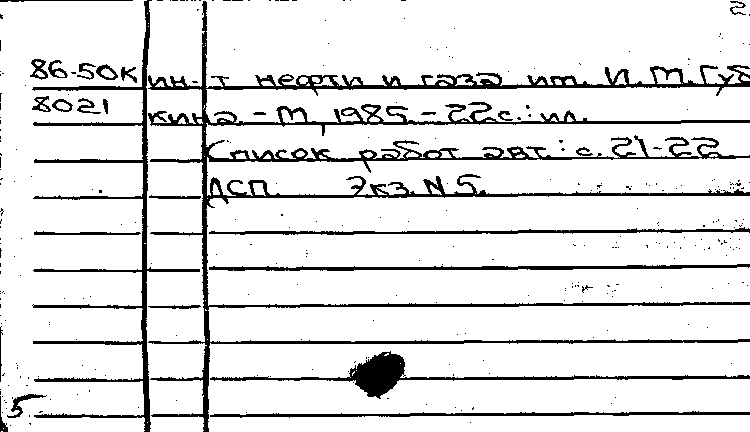 2
86-50к ин-т нефти и газа им. И.М.Губ
8021 кина - М, 1985 - 22с.: ил.
Список работ авт.: с. 21-22
ДСП. Экз. N 5.
5